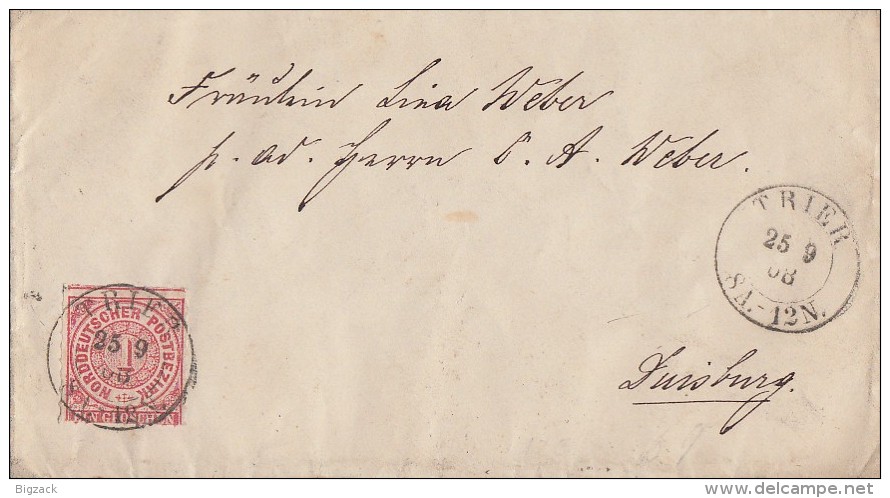 Fräulein Lina Weber
p. ad. Herrn C. A. Weber.
TRIER
25 9
68
8A.-12N.
TRIER
25 9
68
NORDDEUTSCHER POSTBEZIRK
1
EIN GROSCHEN
Duisburg.
Bigzack
www.delcampe.net